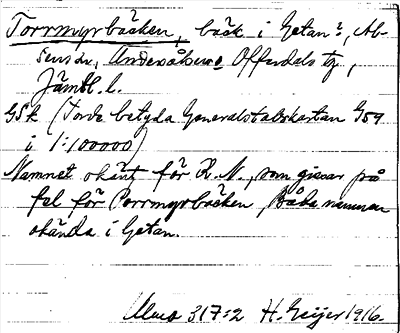 Torrmyrbäcken, bäck i Getan?, Ab-
Änderåsens Offerdals tg,
Jämtl. l.
GSk (Torde betyda Generalstabskartan G59
i 1:100000)
Namnet okänt för K. N., som gissar på
fel för Porrmyrbäcken, Båda namnen
okända i Getan.
317:2 H. Geijer 1916.